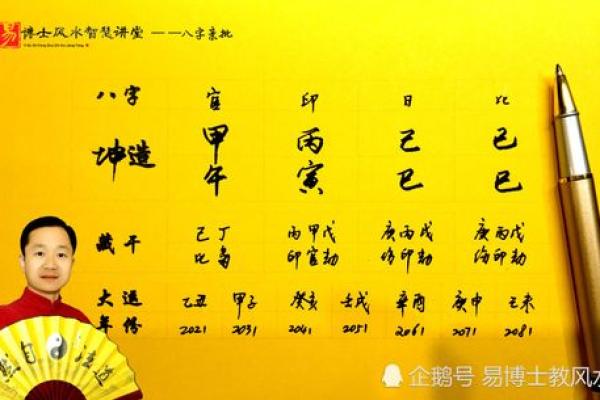 易 博士风水智慧讲堂 ——八字亲批
八字 官 印 日 比
坤造 甲 丙 己 己
午 寅 巳 巳
藏干 己丁 丙甲戊 庚丙戊 庚丙戊
比枭 印官劫 伤印劫 伤印劫
大运 乙丑 甲子 癸亥 壬戌 辛酉 庚申 己未
年份 2021 2031 2041 2051 2061 2071 2081
然自法道
企鹅号 易博士教风水